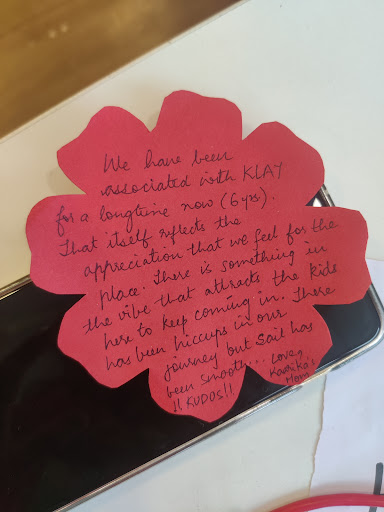 We have been
associated with KLAY
for a longtime now (6yrs).
That itself reflects the
appreciation that we feel for the
place. There is something in
the vibe that attracts the kids
here to keep coming in. There
has been hiccups in our
journey but Sail has
been smooth... Love,
!! KUDOS!! Kavika's
Mom